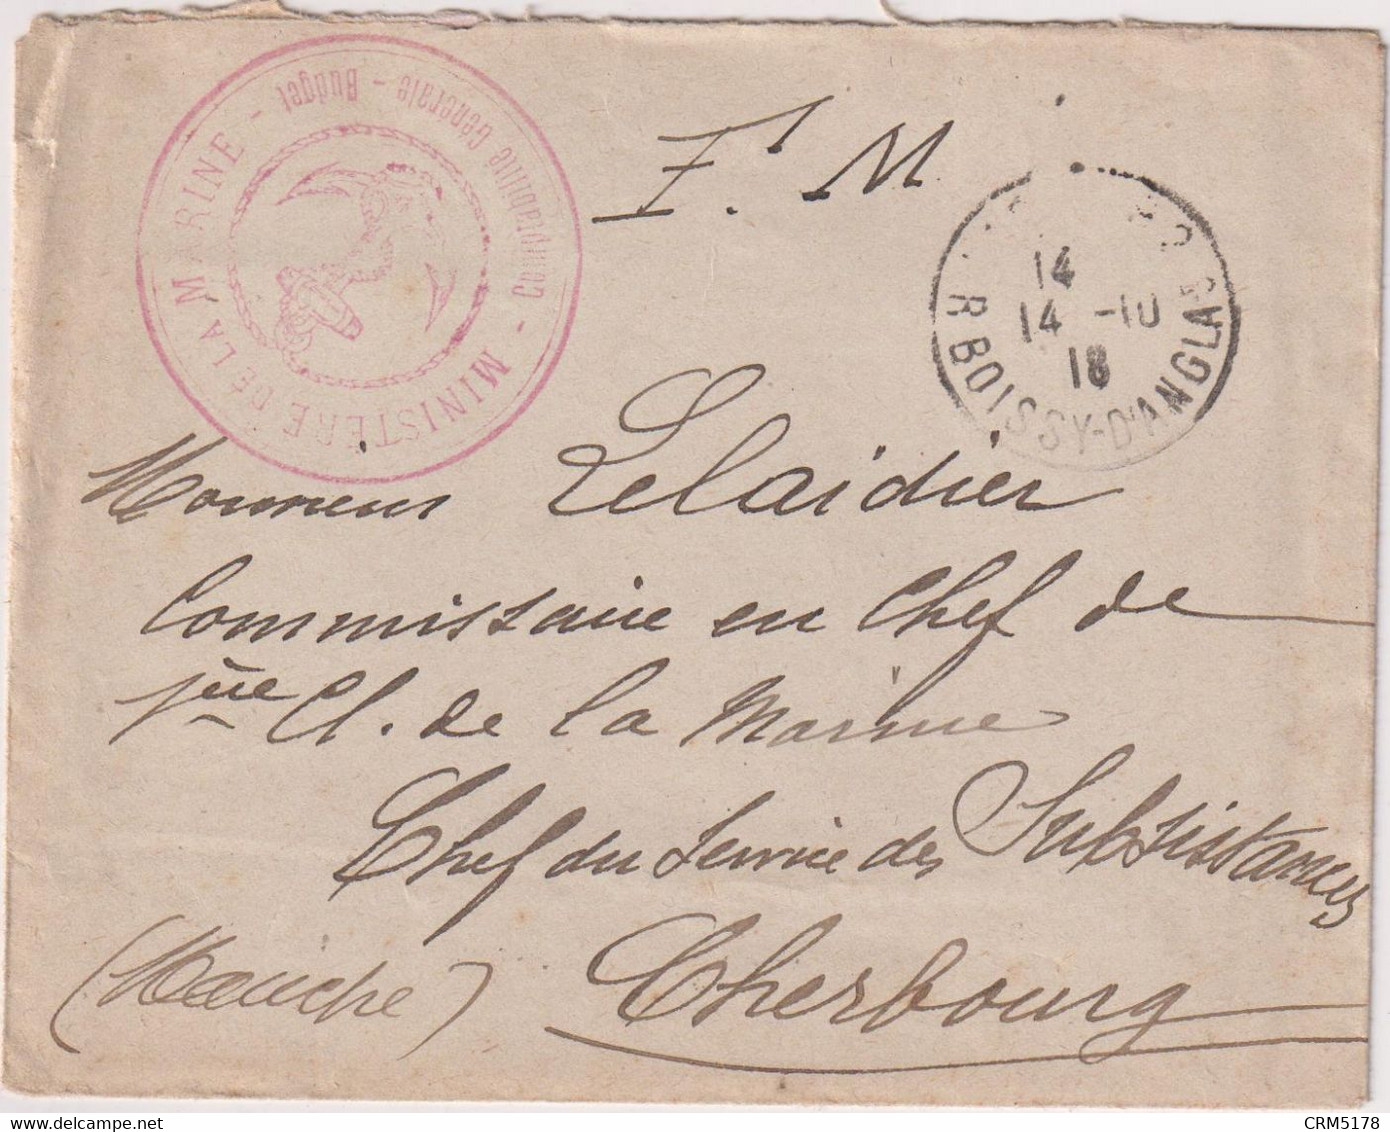 MINISTÈRE DE LA MARINE -
Comptabilité Générale - Budget -
F. M.
14
14 -10
18
R BOISSY-D'ANGLAS
Monsieur Lelaidier
Commissaire en Chef de
1ère Cl. de la Marine
Chef du Service des Subsistances
(Manche) Cherbourg
delcampe.net
CRM5178